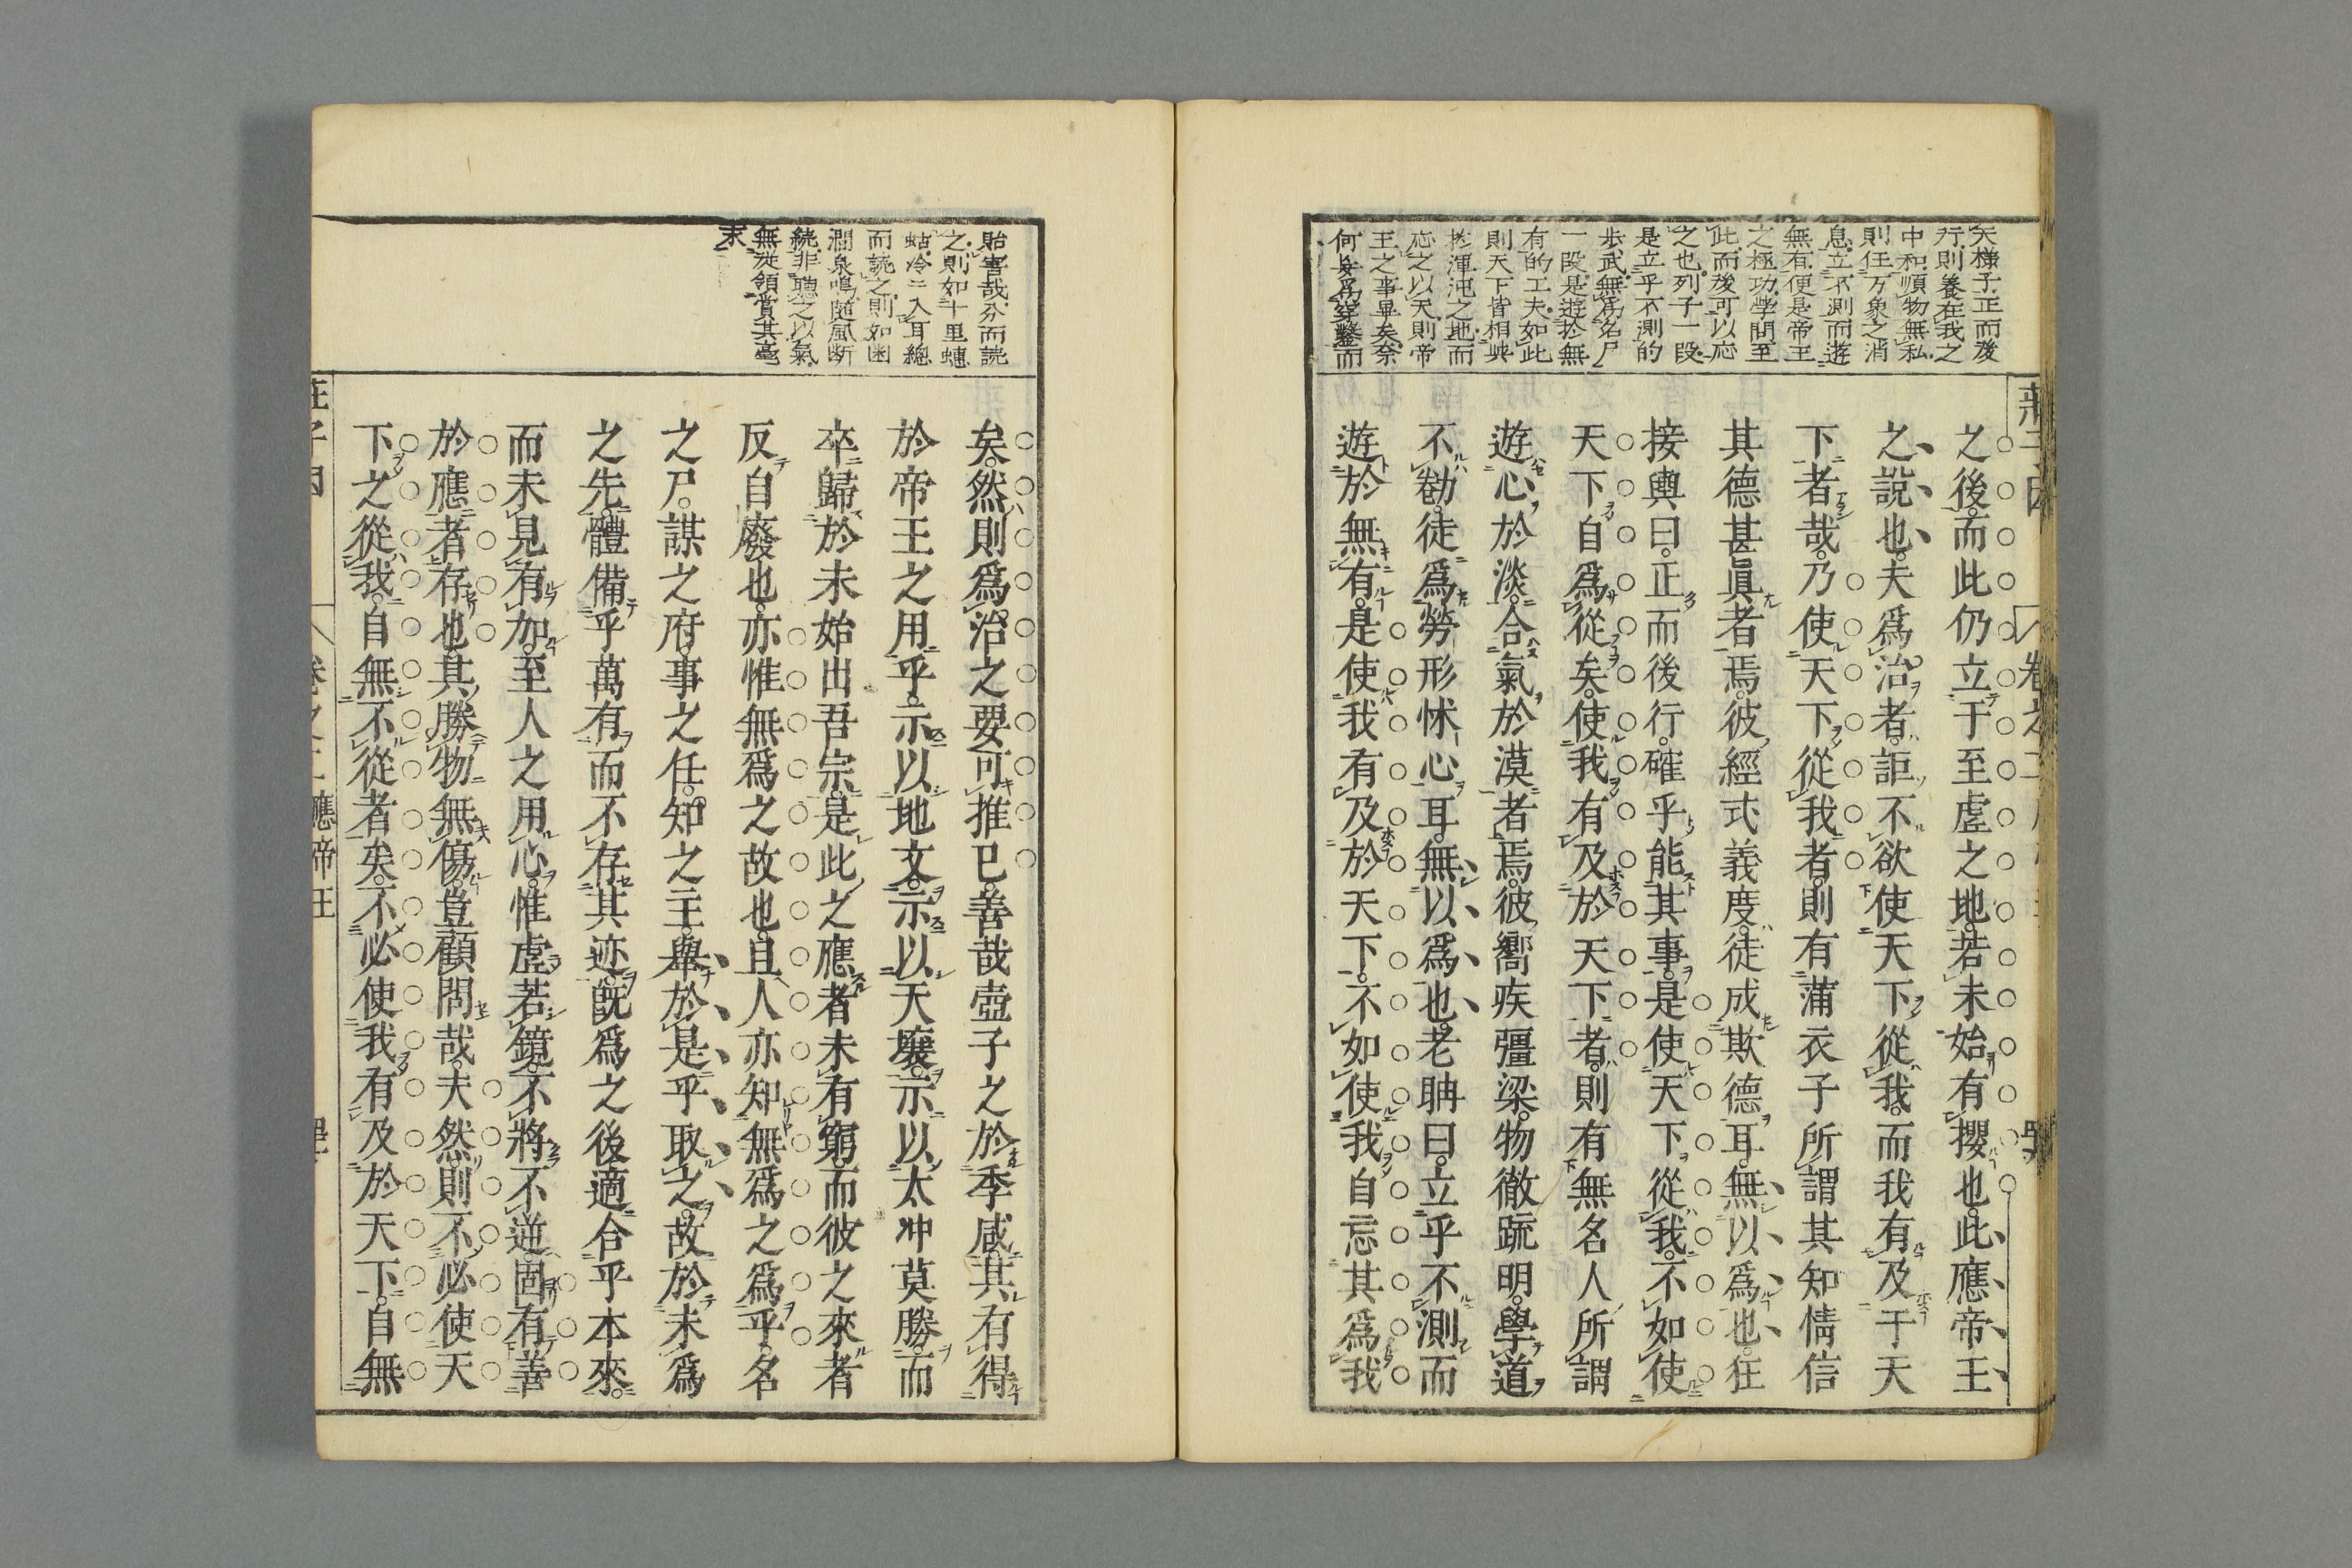 天樣子正而後
行則養在我之
中和順物無私
則任万象之消
息立不測而遊
無有便是帝王
之極功學問至
此而後可以応
之也列子一段
是立乎不測的
歩武無爲名尸
一段是遊於無
有的工夫如此
則天下皆相與
於渾沌之地而
応之以天則帝
王之事畢矣奈
何妄爲穿鑿而
之後而此仍立于至虛之地若未始有攖也此應帝王
之說也夫爲治者詎不欲使天下從我而我有及于天
下者哉乃使天下從我者則有蒲衣子所謂其知情信
其德甚眞者焉彼經式義度徒成欺德耳無以爲也狂
接輿曰正而後行確乎能其事是使天下從我不如使
天下自爲從矣使我有及於天下者則有無名人所謂
遊心於淡合氣於漠者焉彼嚮疾彊梁物徹疏明學道
不勌徒爲勞形怵心耳無以爲也老聃曰立乎不測而
遊於無有是使我有及於天下不如使我自忘其爲我
貽害哉分而読
之則如十里
蛄冷々入耳總
而読之則如
澗泉鳴随風断
続非聴之以氣
無從領賞其毫
末
矣然則爲治之要可推已善哉壺子之於季咸其有得
於帝王之用乎示以地文示以天壤示以太冲莫勝而
卒歸於未始出吾宗是此之應者未有窮而彼之來者
反自廢也亦惟無爲之故也且人亦知無爲之爲乎名
之尸謀之府事之任知之主舉於是乎取之故於未爲
之先體備乎萬有而不存其迹旣爲之後適合乎本來
而未見有加至人之用心惟虛若鏡不將不逆固有善
於應者存也其勝物無傷豈顧問哉夫然則不必使天
下之從我自無不從者矣不必使我有及於天下自無
莊子因
應帝王